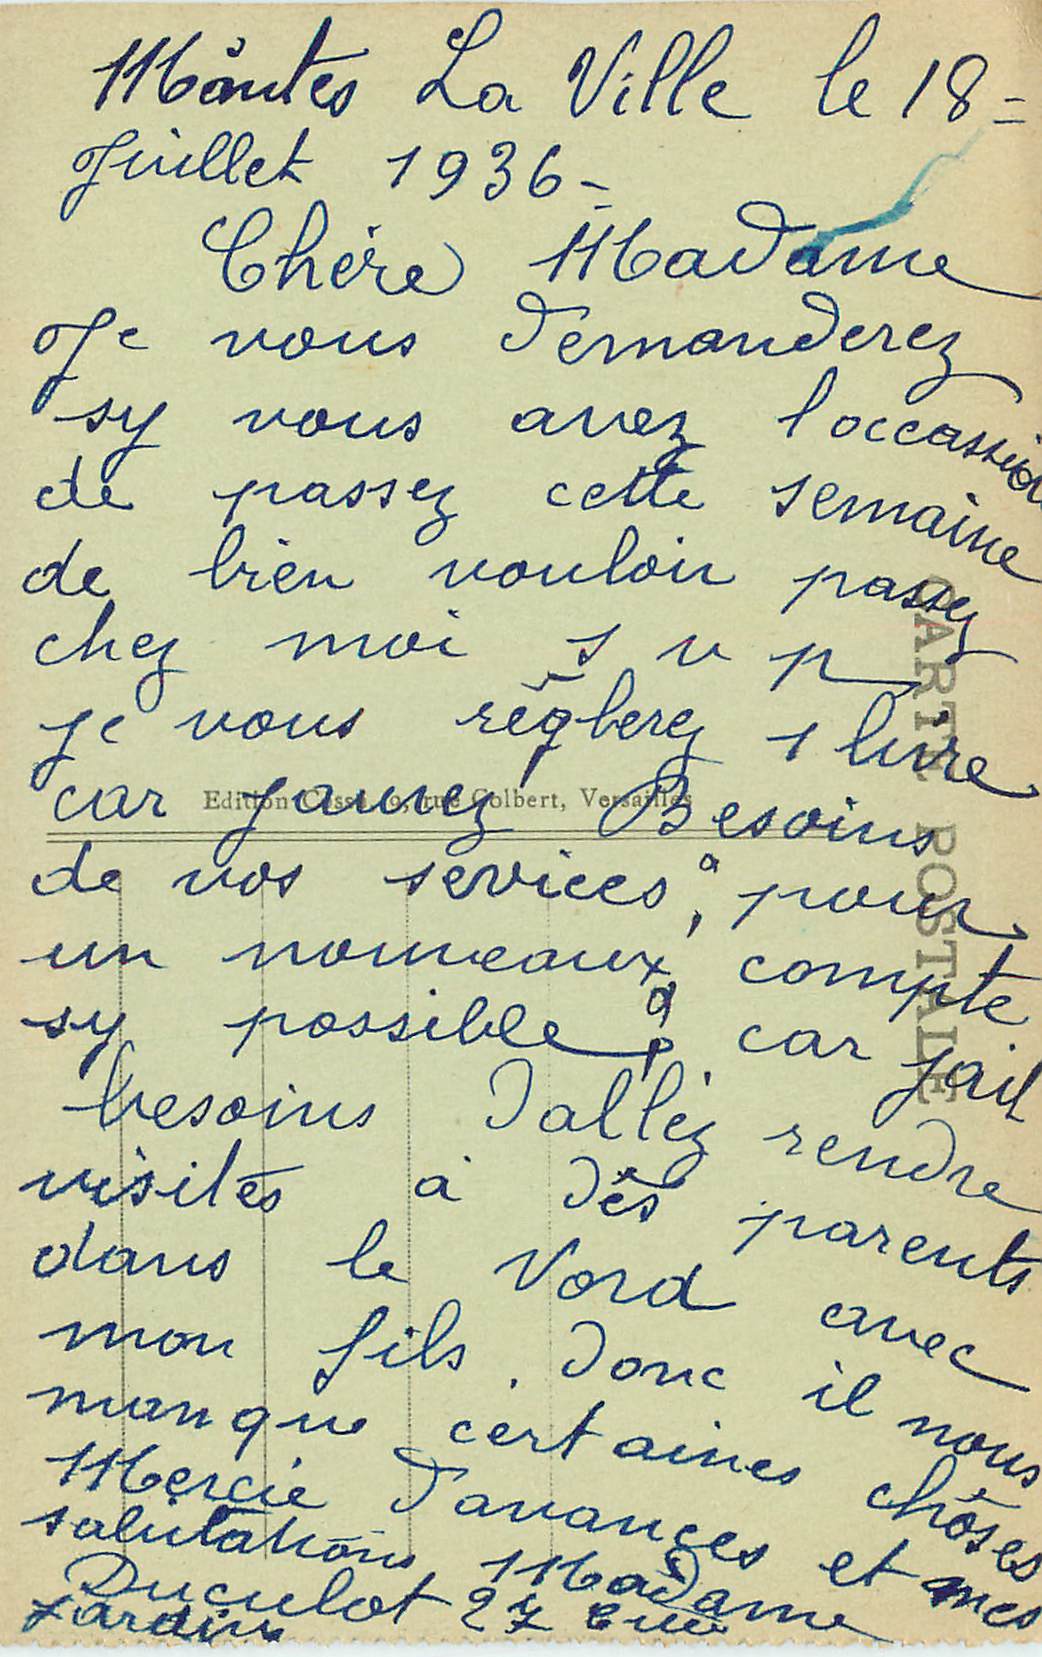 Mântes La Ville le 18-
Juillet 1936-
Chère Madame
Je vous demanderez
sy vous avez l'occassion
de passez cette semaine
de bien vouloir passez
chez moi s v p
je vous règlerez 1 livre
car jaurez Besoins
de vos sevices, pour
un nouveaux compte
sy possible, car jait
besoins d'allez rendre
visites à dès parents
dans le Nord avec
mon fils. donc il nous
manque certaines chôses
Merçie d'avances et mes
salutations Madame
Duculot 27 Rue
Jardins
Edition Cossé, 9, rue Colbert, Versailles
CARTE POSTALE